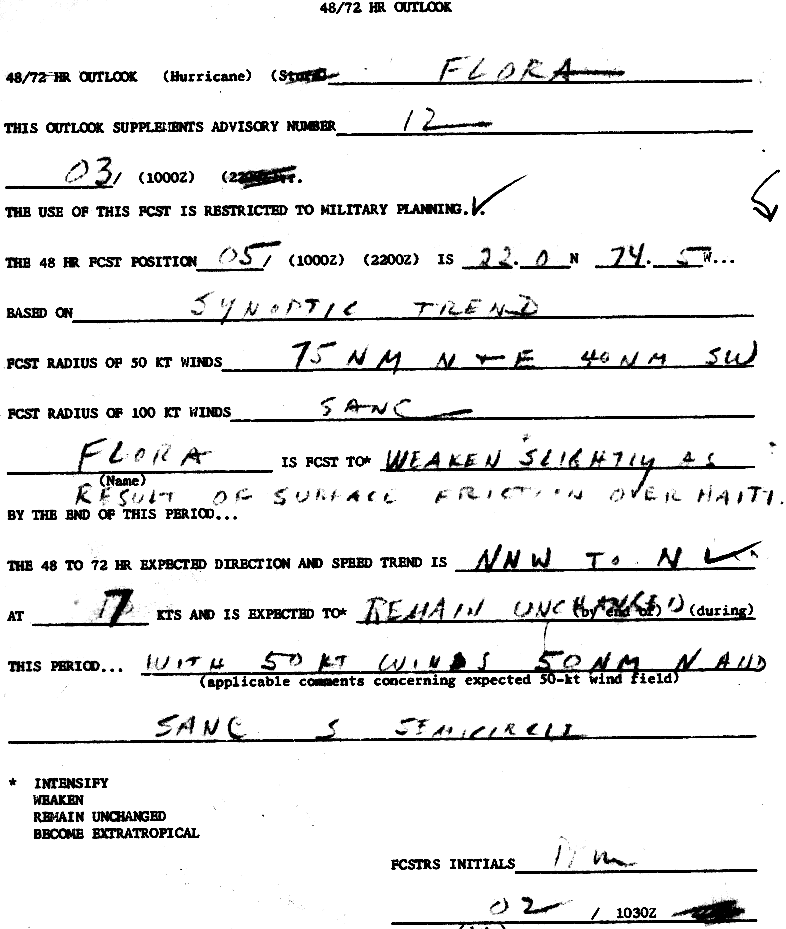 48/72 HR OUTLOOK
48/72 HR OUTLOOK (Hurricane) (Storm) FLORA
THIS OUTLOOK SUPPLEMENTS ADVISORY NUMBER 12
03/ (1000Z) (2200
THE USE OF THIS FCST IS RESTRICTED TO MILITARY PLANNING. ✓.
THE 48 HR FCST POSITION 05/ (1000Z) (2200Z) IS 22.0 N 74.5 W...
BASED ON SYNOPTIC TREND
FCST RADIUS OF 50 KT WINDS 75 NM N + E 40 NM SW
FCST RADIUS OF 100 KT WINDS SANC
FLORA IS FCST TO* WEAKEN SLIGHTLY AS
(Name)
RESULT OF SURFACE FRICTION OVER HAITI.
BY THE END OF THIS PERIOD...
THE 48 TO 72 HR EXPECTED DIRECTION AND SPEED TREND IS NNW TO N ✓
AT 7 KTS AND IS EXPECTED TO* REMAIN UNCHANGED (by end of) (during)
THIS PERIOD... WITH 50 KT WINDS 50 NM N AND
(applicable comments concerning expected 50-kt wind field)
SANC S SEMICIRCLE
* INTENSIFY
WEAKEN
REMAIN UNCHANGED
BECOME EXTRATROPICAL
FCSTRS INITIALS
02 / 1030Z